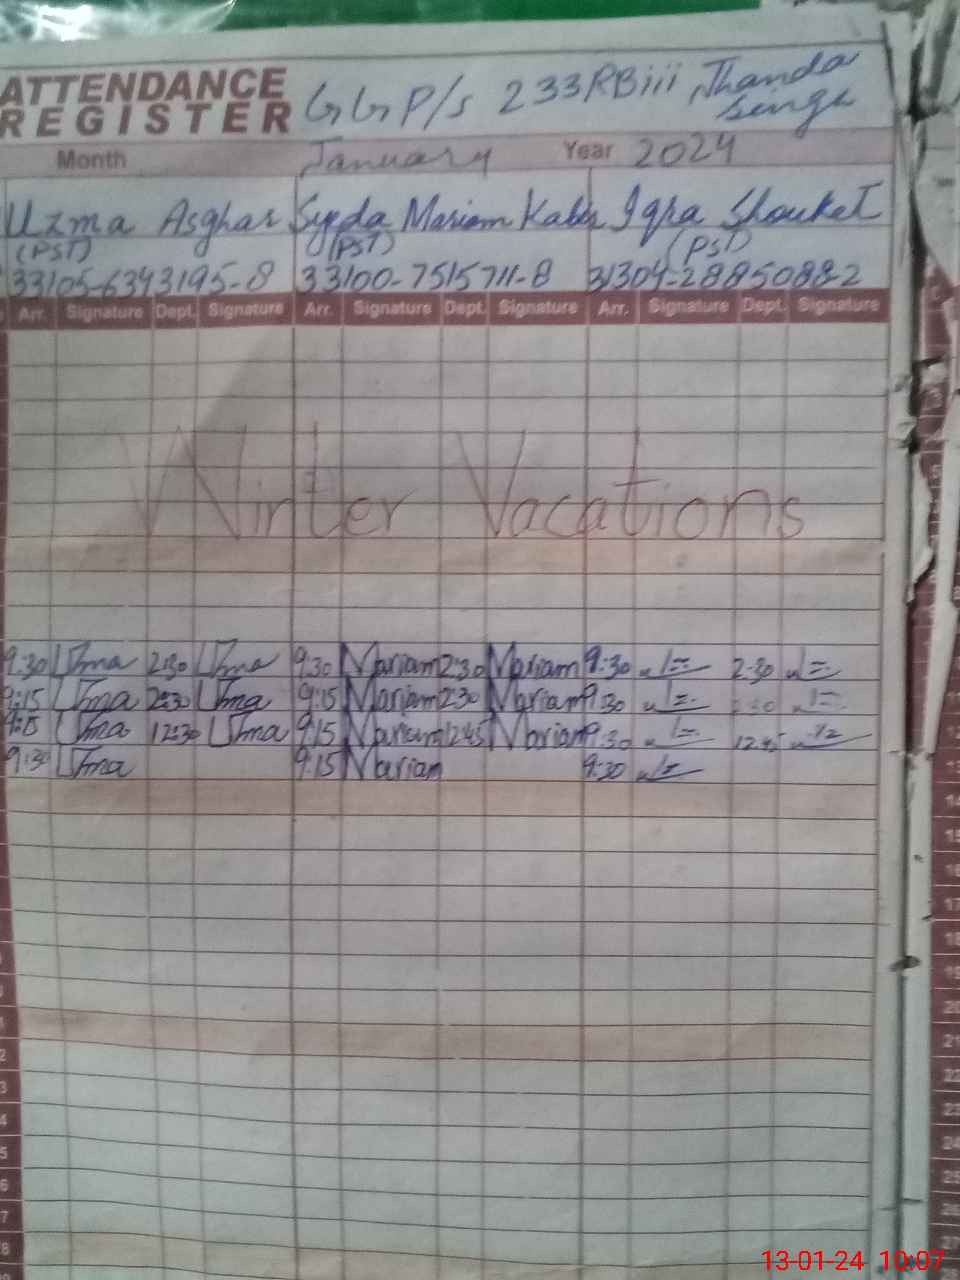 ATTENDANCE REGISTER
GGP/s 233RBiii Jhanda Singh
Month January Year 2024
Uzma Asghar Syeda Mariam Kabir Iqra Shouket
(PST) (PST) (PST)
33105-6343195-8 33100-7515711-8 31304-2885088-2
Arr. Signature Dept. Signature Arr. Signature Dept. Signature Arr. Signature Dept. Signature
Winter Vacations
9:30 Uzma 2:30 Uzma 9:30 Mariam 2:30 Mariam 9:30 2:30
9:15 Uzma 2:30 Uzma 9:15 Mariam 2:30 Mariam 9:30 2:30
9:15 Uzma 12:30 Uzma 9:15 Mariam 12:45 Mariam 9:30 12:45
9:30 Uzma 9:15 Mariam 9:30
14
15
16
17
18
19
20
21
22
23
24
25
26
27
13-01-24 10:07